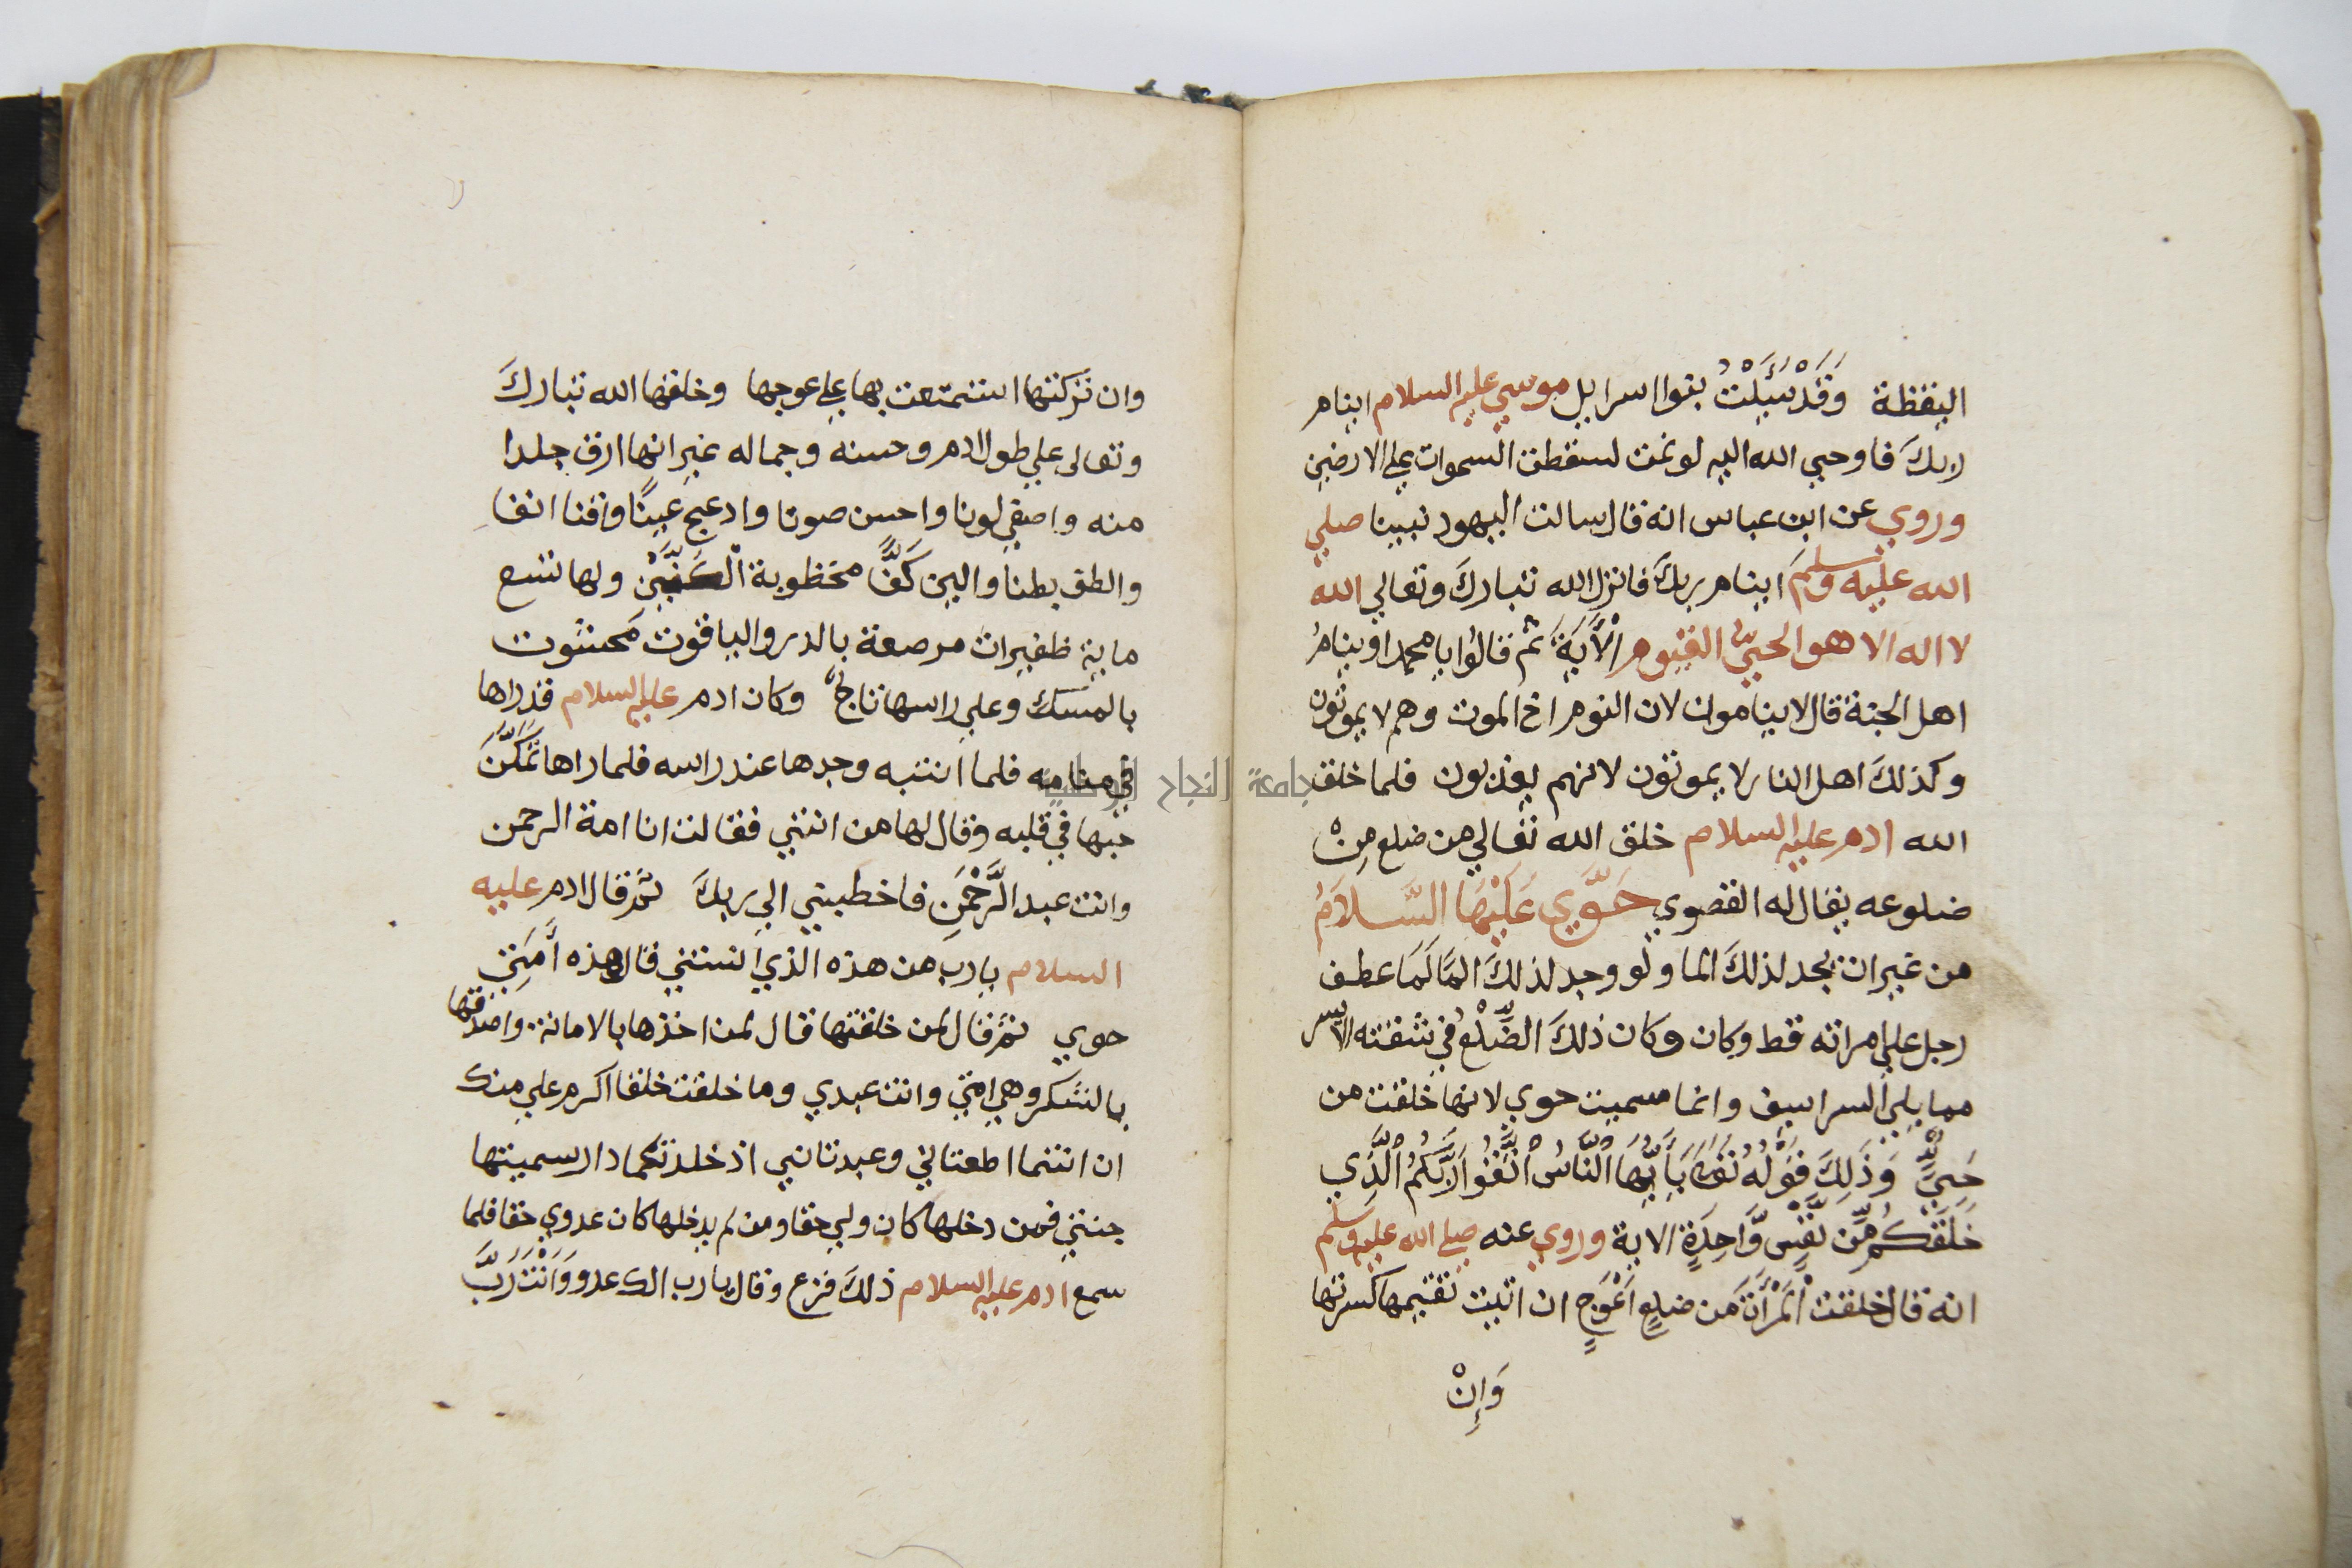 اليقظة وَقَدْ سُئِلَتْ بنوا اسرايل موسي عليه السلام اينام
ربكَ فاوحي الله اليه لو نمت لسقطت السموات علي الارضين
وروي عن ابن عباس انه قال سالت اليهود نبينا صلي
الله عليه وسلم اينام ربكَ فانزل الله تباركَ وتعالي الله
لا اله الا هو الحيّ القيوم الْأَيَةَ ثم قالوا يا محمد اوينامُ
اهل الجنة قال لا ينامون لان النوم اخ الموت وهم لا يموتون
وكذلكَ اهل النار لا يموتون لانهم يعذبون فلما خلق
الله ادم عليه السلام خلق الله تعالي من ضلع مِنْ
ضلوعه يقال له القصوي حَوَّي عَلَيْهَا السَّلَامُ
من غير ان يجد لذلكَ الما ولو وجد لذلكَ المًا لَمَا عطف
رجل علي امراته قط وكان وكان ذلكَ الضِّلْعُ في شقته الايسر
مما يلي السراسيف وانما سميت حوي لانها خلقت من
حَيٍّ وَذَلِكَ قَوْلُهُ تَعَالَي يَأَيُّهَا النَّاسُ اتَّقُوا رَبَّكُمُ الَّذِي
خَلَقَكُم مِّن نَّفْسٍ وَّاحِدَةٍ الاية وروي عنه صلي الله عليه وسلم
انه قال خلقت الْمَرْأَةَ مَن ضِلعٍ اَعْوَجٍ ان اتيت تقيمها كسرتها
وَإِنْ
وان تَركتها استمتعت بها علي عوجها وخلقها الله تباركَ
وتعالي علي طول ادم وحسنه وجماله غير انها ارق جلدا
منه واصفي لونا واحسن صوتا وادعج عينًا واقنا انفا
والطق بطنا والين كَفًّا مخظوبة الْكَفَّيْن ولها تسع
ماية ظفيرات مرصعة بالدر والياقوت مَحشوت
بالمسك وعلي راسها تاج وكان ادم عليه السلام قد راها
في منامه فلما انتبه وجدها عند راسه فلما راها تَمَكَّنَ
حبها في قلبه وقال لها من انتي فقالت انا امة الرحمن
وانت عبد الرَّحْمَن فاخطبني الي ربكَ ثم قال ادم عليه
السلام يا رب من هذه الذي انستني قال هذه أَمَتِي
حوي ثم قال لمن خلقتها قال لمن اخذها بالامانة واصدقها
بالشكر وهي امتي وانت عبدي وما خلقت خلقا اكرم علي منك
ان انتما اطعتاني وعبدتاني اذ خلدتكما دار سميتها
جنتي فمن دخلها كان ولي حقا ومن لم يدخلها كان عدوي حقا فلما
سمع ادم عليه السلام ذلكَ فزع وقال يا رب الك عدو وَاَنْتَ رَبُّ
جامعة النجاح الوطنية